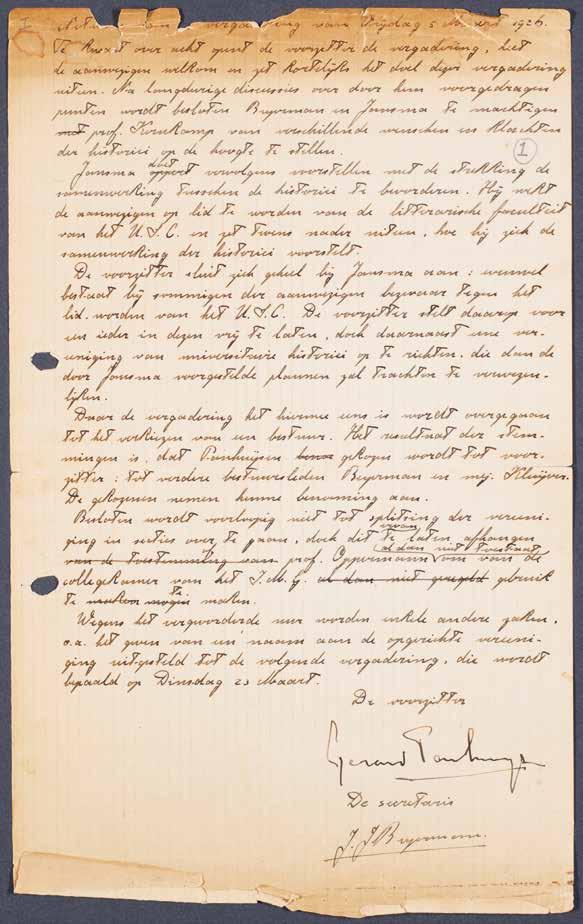 I
Notulen van de vergadering van Vrijdag 5 Maart 1926.
Te kwart over acht opent de voorzitter de vergadering, heet
de aanwezigen welkom en zet kortelijks het doel dezer vergadering
uiteen. Na langdurige discussies over door hem voorgedragen
punten wordt besloten Beyerman en Jansma te machtigen
met prof. Kernkamp van verschillende wenschen en klachten
der historici op de hoogte te stellen.
1
Jansma doet oppert vervolgens voorstellen met de strekking de
samenwerking tusschen de historici te bevorderen. Hij wekt
de aanwezigen op lid te worden van de litterarische faculteit
van het U.S.C. en zet tevens nader uiteen, hoe hij zich de
samenwerking der historici voorstelt.
De voorzitter sluit zich geheel bij Jansma aan: evenwel
bestaat bij sommigen der aanwezigen bezwaar tegen het
lid-worden van het U.S.C. De voorzitter stelt daarop voor
een ieder in dezen vrij te laten, doch daarnaast eene ver-
eeniging van universitaire historici op te richten, die dan de
door Jansma voorgestelde plannen zal trachten te verwezen-
lijken.
Daar de vergadering het hiermee eens is wordt overgegaan
tot het verkiezen van een bestuur. Het resultaat der stem-
mingen is, dat Panhuijsen gekozen wordt tot voor-
zitter; tot verdere bestuursleden Beyerman en mej. Kluijver.
De gekozenen nemen hunne benoeming aan.
Besloten wordt voorloopig niet tot splitsing der vereeni-
ging in secties over te gaan, doch dit te laten afhangen
ervan
van de toestemming van prof. Oppermann om van de
al dan niet toestaat
collegekamer van het I.M.G. al dan niet geregeld gebruik
te maken mogen te maken.
Wegens het vergevorderde uur worden enkele andere zaken,
o.a. het geven van een naam aan de opgerichte vereeni-
ging uitgesteld tot de volgende vergadering, die wordt
bepaald op Dinsdag 23 Maart.
De voorzitter
Gerard Panhuysen
De secretaris
J. J. Beyerman.